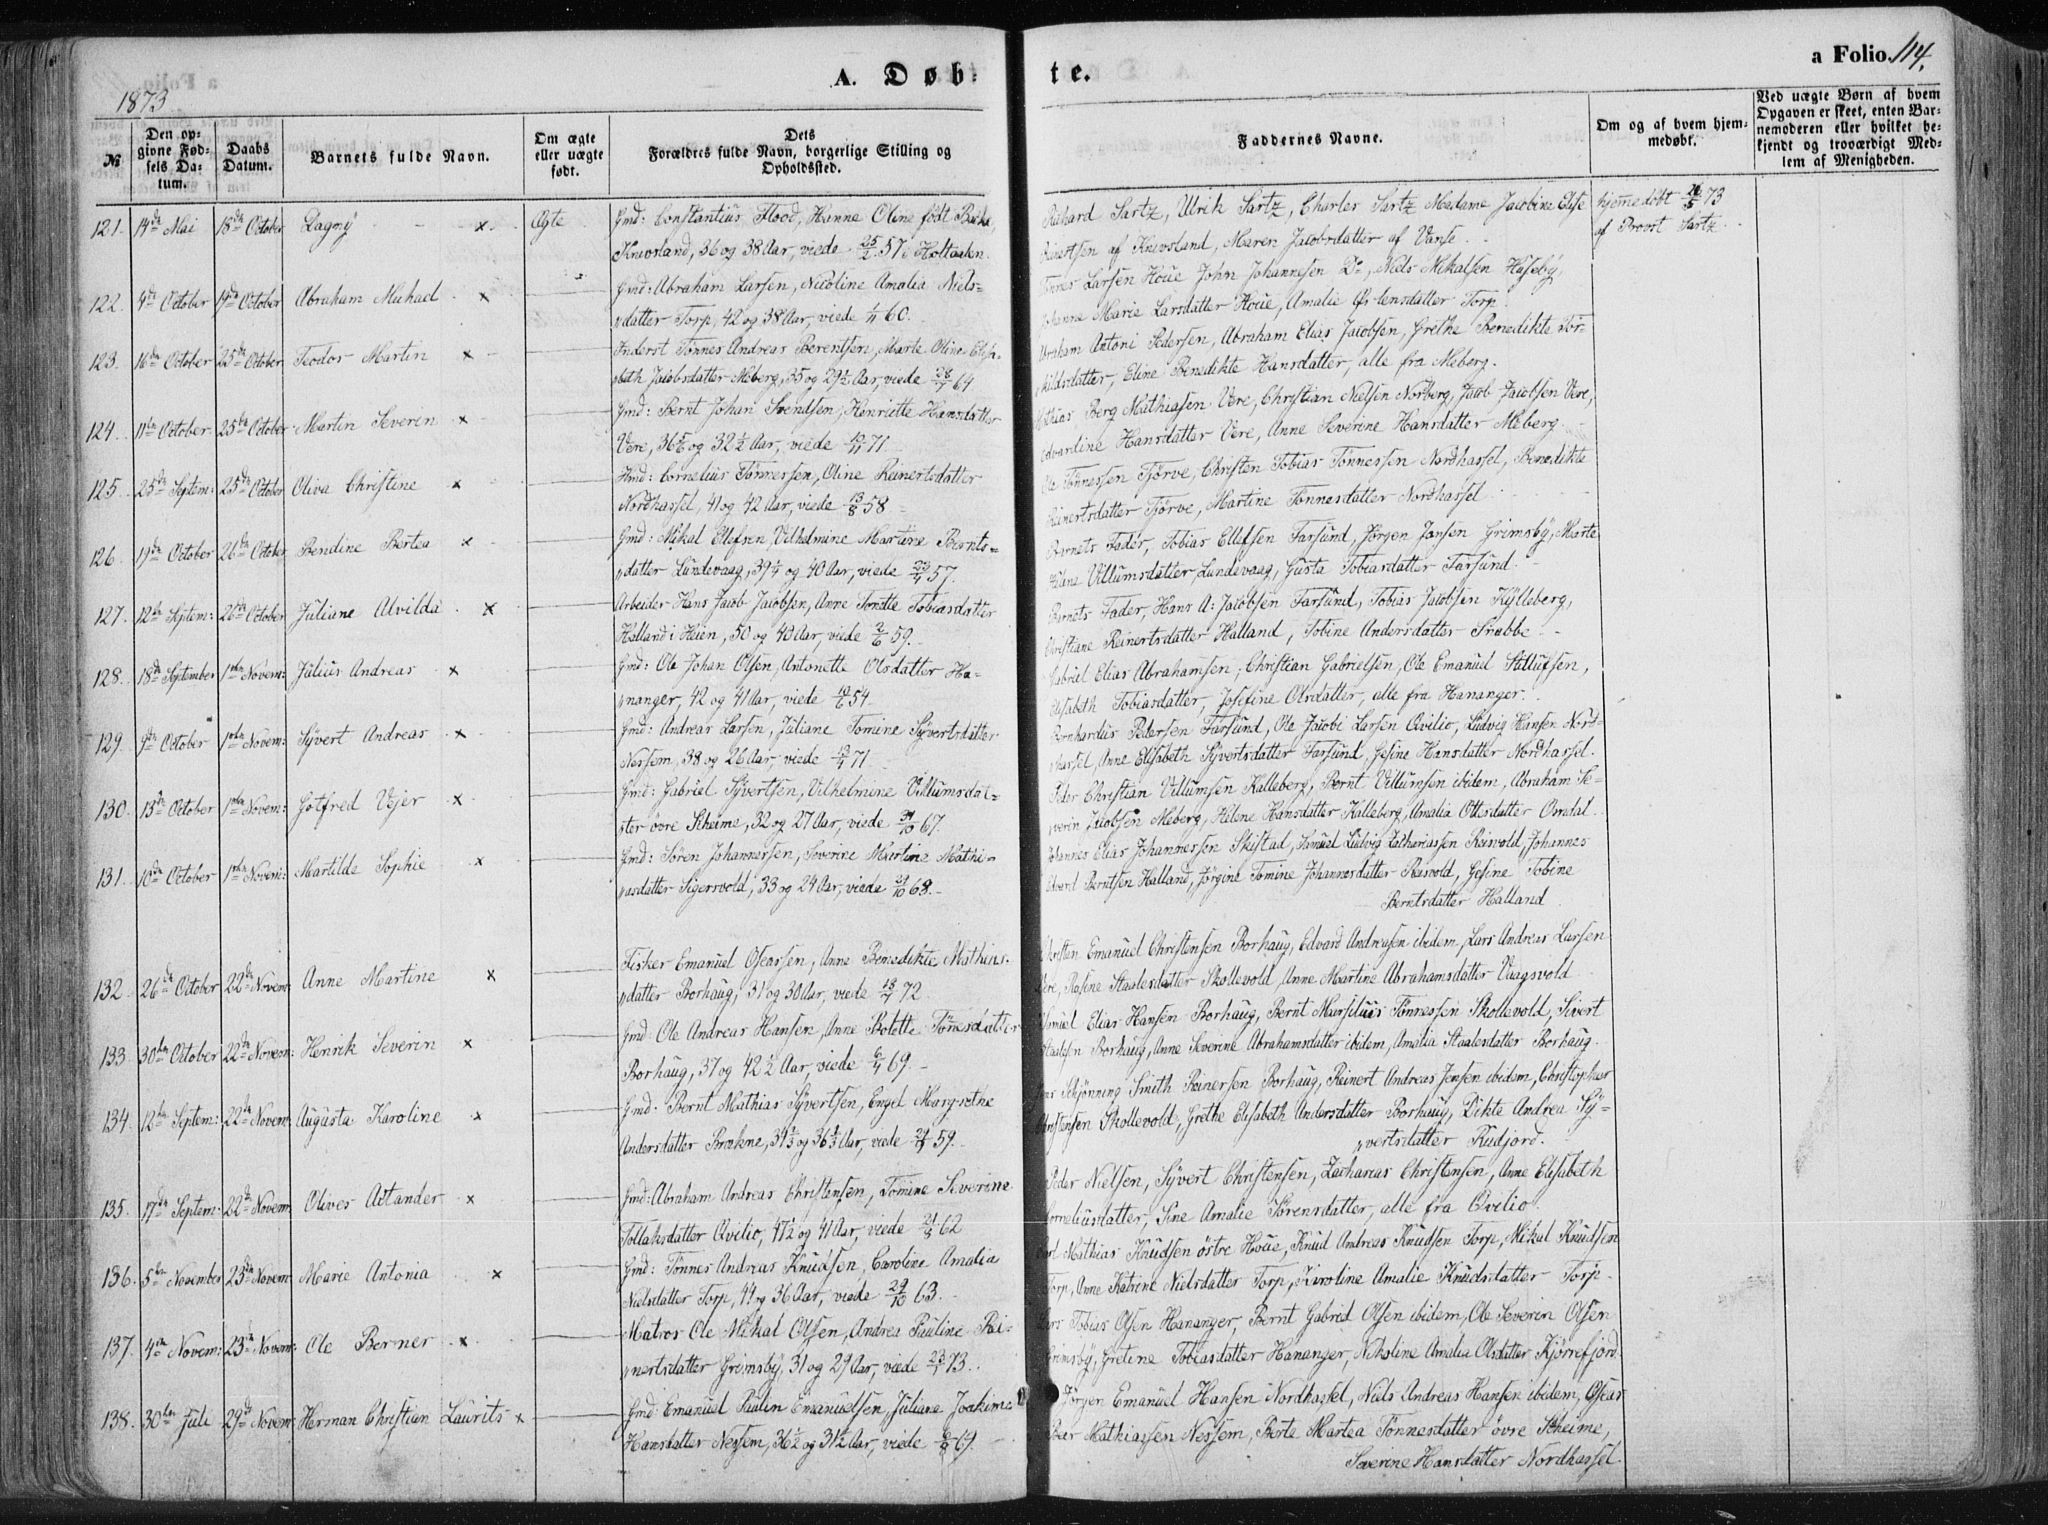 A. Døb-
te.
a Folio.
114.
1873
№
Den op-
givne Fød-
sels Da-
tum.
Daabs
Datum.
Barnets fulde Navn.
Om ægte
eller uægte
født.
Dets
Forældres fulde Navn, borgerlige Stilling og
Opholdssted.
Faddernes Navne.
Om og af hvem hjem-
medøbt.
Ved uægte Børn af hvem
Opgaven er skeet, enten Bar-
nemoderen eller hvilket be-
kjendt og troværdigt Med-
lem af Menigheden.
121. 14de Mai 18de October Dagny x Ægte Gmd: Constantius Flood, Hanne Oline født
Knivsland, 36 og 38 Aar, viede 25/2 57 i Holtaalen.
Richard Sartz, Ulrik Sartz, Charles Sartz Medame Jacobine Else
Reinertsen af Knivsland, Maren Jacobsdatter af Vanse.
hjemmedøbt 26/5 73
af Provst Sartz.
122. 4de October 19de October Abraham Mikael x Gmd: Abraham Larsen, Nicoline Amalia Niels-
datter Torp, 42 og 38 Aar, viede 1/11 60.
Tønnes Larsen Houe John Johannesen Do, Niels Mikalsen Haseby,
Johanne Marie Larsdatter Houe, Amalie Østensdatter Torp.
123. 16de October 25de October Teodor Martin x Inderst Tønnes Andreas Berentsen, Marte Oline Elisa-
beth Jacobsdatter Meberg, 35 og 29½ Aar, viede 28/7 64
Abraham Antoni Pedersen, Abraham Elias Jacobsen, Grethe Benedikte Tor-
kildsdatter, Eline Benedikte Hansdatter, alle fra Meberg.
124. 11te October 25de October Martin Severin x Gmd: Bernt Johan Svendsen, Henriette Hansdatter
Vere, 36 5/6 og 32½ Aar, viede 71.
Mathias Berg Mathiasen Vere, Christian Nielsen Norberg, Jacob Jacobsen Vere,
Edvardine Hansdatter Vere, Anne Severine Hansdatter Meberg.
125. 25de Septem: 25de October Oliva Christine x Gmd: Cornelius Tønnessen, Oline Reinertsdatter
Nordhassel, 41 og 42 Aar, viede 13/8 58
Ole Tønnessen Tjørve, Christen Tobias Tønnessen Nordhassel, Benedikte
Reinertsdatter Tjørve, Martine Tønnesdatter Nordhassel
126. 19de October 26de October Bendine Bertea x Gmd: Mikal Ellefsen, Vilhelmine Martine Bernts-
datter Lundevaag, 39¼ og 40 Aar, viede 57.
Barnets Fader, Tobias Ellefsen Farsund, Jørgen Jansen Grimsby, Marte
Villumsdatter Lundevaag, Gusta Tobiasdatter Farsund.
127. 12te Septem: 26de October Juliane Alvilda x Arbeider Hans Jacob Jacobsen, Anne Tonette Tobiasdatter
Halland i Heien, 50 og 40 Aar, viede 2/6 59.
Barnets Fader, Hans A: Jacobsen Farsund, Tobias Jacobsen Kylleberg,
Christiane Reinertsdatter Halland, Tobine Andersdatter Snebbe
128. 18de September 1ste Novem: Julius Andreas x Gmd: Ole Johan Olsen, Antonette Olsdatter Ha-
nanger, 42 og 41 Aar, viede 54.
Gabriel Elias Abrahamsen, Christian Gabrielsen, Ole Emanuel Stillufsen,
Elisabeth Tobiasdatter, Josefine Olsdatter, alle fra Hananger.
129. 9de October 1ste Novem: Syvert Andreas x Gmd: Andreas Larsen, Juliane Tomine Syvertsdatter
Nessem, 38 og 26 Aar, viede 71.
Bernhardus Pedersen Farsund, Ole Jacobi Larsen Qvilio, Ludvig Hansen Nord-
hassel, Anne Elisabeth Syvertsdatter Farsund, Gesine Hansdatter Nordhassel.
130. 13de October 1ste Novem: Gotfred Vejer x Gmd: Gabriel Syvertsen, Vilhelmine Villumsdat-
ter øvre Skeime, 32 og 27 Aar, viede 31/10 67.
Peder Christian Villumsen Kalleberg, Bernt Villumsen ibidem, Abraham Se-
verin Jacobsen Meberg, Helene Hansdatter Kalleberg, Amalia Ottesdatter Omdal.
131. 10de October 1ste Novem: Martilde Sophie x Gmd: Søren Johannessen, Severine Martine Mathi-
asdatter Sigersvold, 33 og 24 Aar, viede 29/10 68.
Johannes Elias Johannessen Skistad, Samuel Ludvig Zachariassen Reisvold, Johannes
Edvard Berntsen Halland, Jørgine Tomine Johannesdatter Reisvold, Gesine Tobine
Berntsdatter Halland
132. 26de October 22de Novem: Anne Martine x Fisker Emanuel Osearsen, Anne Benedikte Mathias-
datter Borhaug, 31 og 30 Aar, viede 18/7 72.
Emanuel Christensen Borhaug, Edvard Andreasen ibidem, Lars Andreas Larsen
Vere, Rasine Staalesdatter Skollevold, Anne Martine Abrahamsdatter Vaagsvold
133. 30te October 22de Novem: Henrik Severin x Gmd Ole Andreas Hansen, Anne Bolette Tønnesdatter
Borhaug, 37 og 42½ Aar, viede 69.
Samuel Elias Hansen Borhaug, Bernt Marselius Tønnessen Skollevold, Sivert
Staalesen Borhaug, Anne Severine Abrahamsdatter ibidem, Amalia Staalesdatter Borhaug.
134. 12te Septem: 22de Novem: Augusta Karoline x Gmd. Bernt Mathias Syvertsen, Engel Margrethe
Andersdatter Brekne, 39⅓ og 36⅓ Aar, viede 59.
Schjønning Smith Reinersen Borhaug, Reinert Andreas Jensen ibidem, Christopher
Christensen Skollevold, Grethe Elisabeth Andersdatter Borhaug, Dikte Andrea Sy-
vertsdatter Rudjord.
135. 17de Septem: 22de Novem: Olives Astander x Gmd: Abraham Andreas Christensen, Tomine Severine
Tollaksdatter Qvilio, 47½ og 41 Aar, viede 62
Peder Nielsen, Syvert Christensen, Zacharias Christensen, Anne Elisabeth
Corneliusdatter, Sine Amalie Sørensdatter, alle fra Qvilio.
136. 5te November 23de Novem: Marie Antonia x Gmd: Tønnes Andreas Knudsen, Caroline Amalia
Nielsdatter Torp, 44 og 36 Aar, viede 29/10 63.
Mathias Knudsen østre Houe, Knud Andreas Knudsen Torp, Mikal Knudsen
Torp, Anne Katrine Nielsdatter Torp, Karoline Amalie Knudsdatter Torp.
137. 4de Novem: 23de Novem: Ole Berner x Matros Ole Mikal Olsen, Andrea Pauline Rei-
nertsdatter Grimsby, 31 og 29 Aar, viede 23/1 73.
Lars Tobias Olsen Hananger, Bernt Gabriel Olsen ibidem, Ole Severin Olsen
Grimsby, Gretine Tobiasdatter Hananger, Nikoline Amalia Olsdatter Kjørrefjord.
138. 30te Juli 29de Novem: Herman Christian Laurits x Gmd: Emanuel Paulin Emanuelsen, Juliane Joakime
Hansdatter Nessem, 36½ og 31½ Aar, viede 69.
Jørgen Emanuel Hansen Nordhassel, Niels Andreas Hansen ibidem, Osear
Peder Mathiassen Nessem, Berte Martea Tønnesdatter øvre Skeime,
Severine Hansdatter Nordhassel.